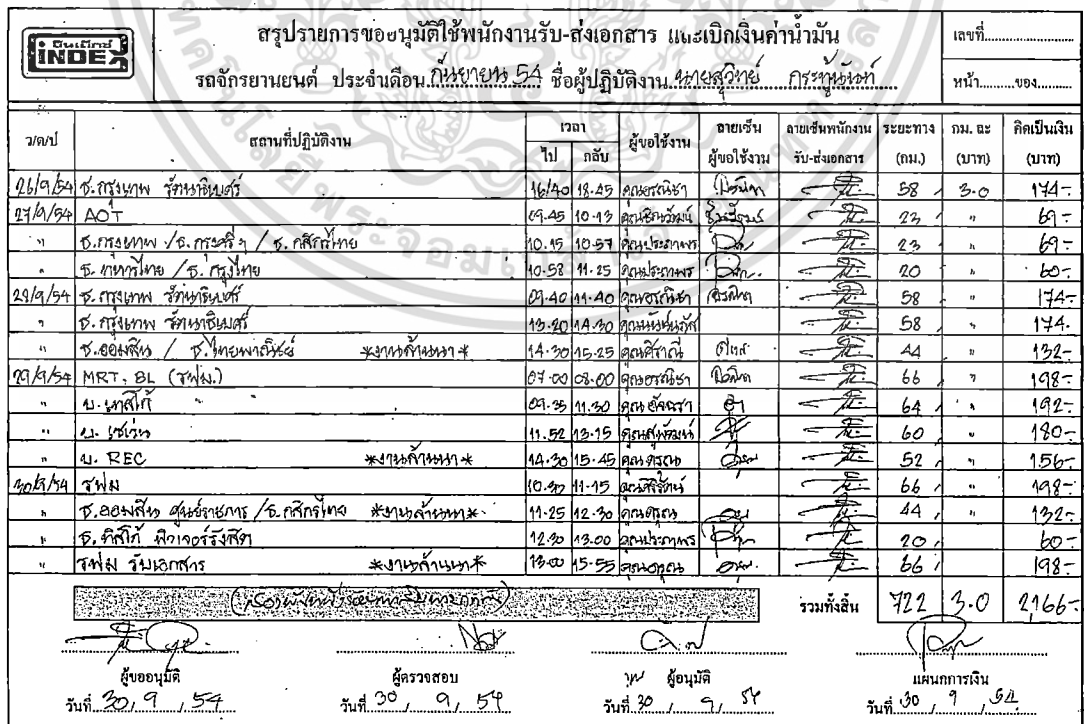 อินเด็กซ์
INDEX
สรุปรายการขออนุมัติใช้พนักงานรับ-ส่งเอกสาร และเบิกเงินค่าน้ำมัน
รถจักรยานยนต์ ประจำเดือน กันยายน 54 ชื่อผู้ปฏิบัติงาน นายสุวิทย์
เลขที่
หน้า ของ
ว/ด/ป สถานที่ปฏิบัติงาน เวลา ไป กลับ ผู้ขอใช้งาน ลายเซ็นผู้ขอใช้งาน ลายเซ็นพนักงานรับ-ส่งเอกสาร ระยะทาง (กม.) กม. ละ (บาท) คิดเป็นเงิน (บาท)
26/9/54 ธ.กรุงเทพ รัตนาธิเบศร์ 16/40 18.45 คุณอรณิชา 58 3.0 174-
27/9/54 AOT 09.45 10.13 23 " 69-
" ธ.กรุงเทพ / ธ.กรุงศรีฯ / ธ.กสิกรไทย 10.15 10.57 คุณประภาพร 23 " 69-
" ธ.ทหารไทย / ธ.กรุงไทย 10.58 11.25 คุณประภาพร 20 " 60-
ธ.กรุงเทพ รัตนาธิเบศร์ 09.40 11.40 คุณอรณิชา 58 " 174-
" ธ.กรุงเทพ รัตนาธิเบศร์ 13.20 14.30 58 " 174.
" ธ.ออมสิน / ธ.ไทยพาณิชย์ *งานล้านนา* 14.30 15.25 44 " 132-
29/9/54 MRT, BL (รฟม.) 07.00 08.00 คุณอรณิชา 66 " 198-
" บ.เทสโก้ 09.35 11.30 64 " 192-
" บ. 11.52 13.15 60 " 180-
" บ. REC *งานล้านนา* 14.30 15.45 คุณดรุณ 52 " 156-
30/9/54 รฟม 10.30 11.15 คุณศิริรัตน์ 66 " 198-
" ธ.ออมสิน ศูนย์ราชการ / ธ.กสิกรไทย *งานล้านนา* 11.25 12.30 คุณดรุณ 44 " 132-
" ธ.ทิสโก้ ฟิวเจอร์รังสิต 12.30 13.00 คุณประภาพร 20 60-
" รฟม รับเอกสาร *งานล้านนา* 13.00 15.55 คุณดรุณ 66 198-
รวมทั้งสิ้น 722 3.0 2166-
ผู้ขออนุมัติ ผู้ตรวจสอบ ผู้อนุมัติ แผนกการเงิน
วันที่ 30 / 9 / 54 วันที่ 30 / 9 / 54 วันที่ 30 / 9 / 54 วันที่ 30 / 9 / 54